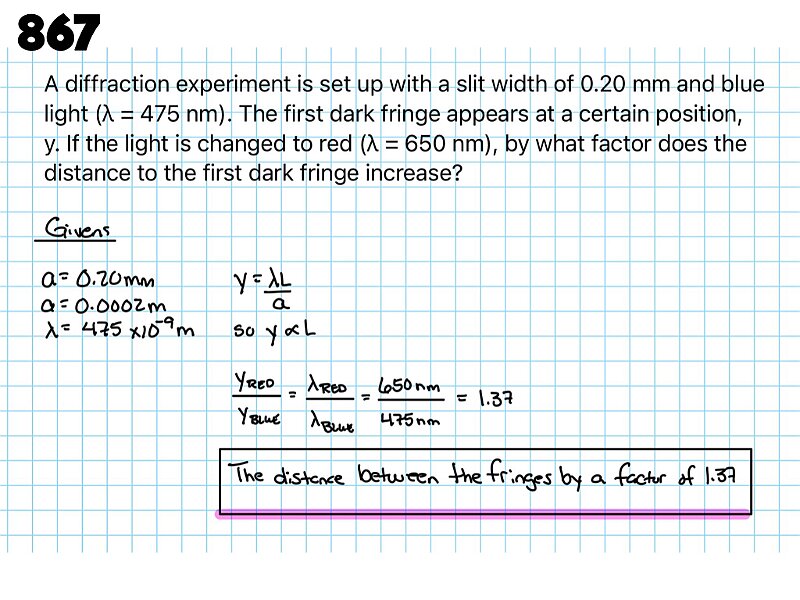 867
A diffraction experiment is set up with a slit width of 0.20 mm and blue
light (λ = 475 nm). The first dark fringe appears at a certain position,
y. If the light is changed to red (λ = 650 nm), by what factor does the
distance to the first dark fringe increase?
Givens
a = 0.20mm
a = 0.0002m
λ = 475 x10⁻⁹m
y = λL/a
so y ∝ L
yRED/yBLUE = λRED/λBLUE = 650nm/475nm = 1.37
The distance between the fringes by a factor of 1.37